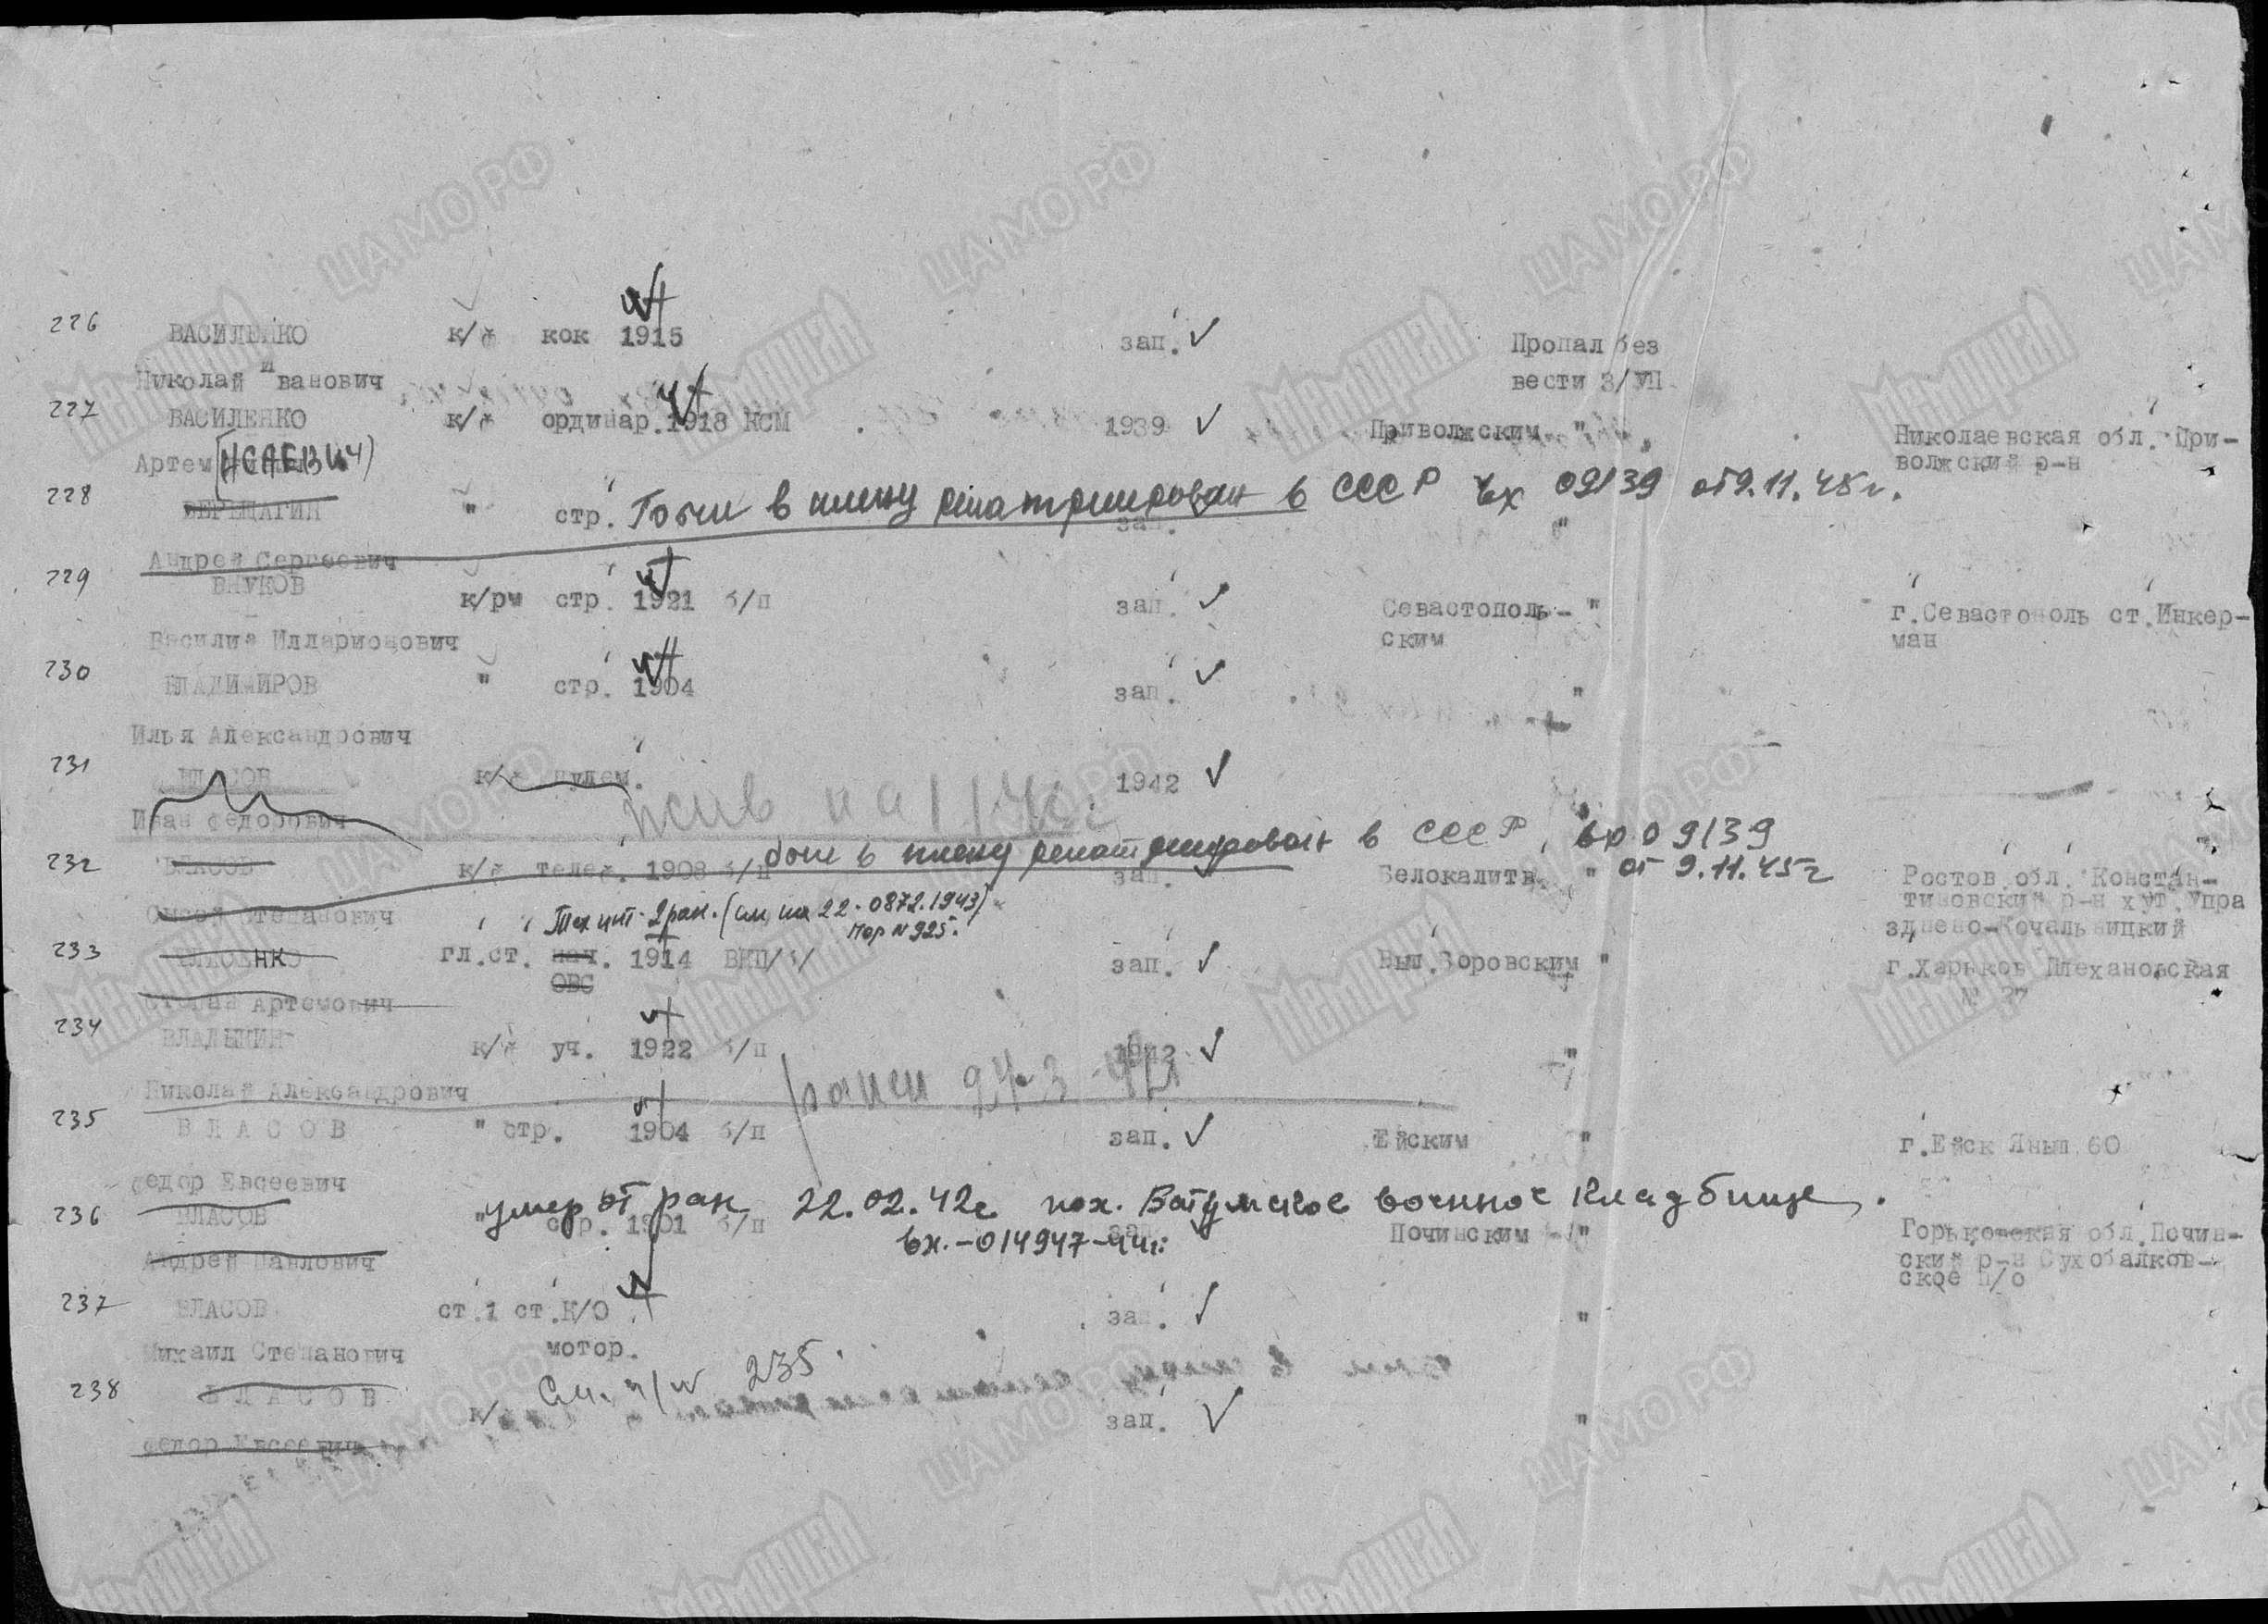 226 ВАСИЛЕНКО к/ф кок 1915 зап. Пропал без
Николай Иванович вести З/УП
227 ВАСИЛЕНКО к/ф ординар. 1918 КСМ 1939 Приволжским " Николаевская обл. При-
Артем (ИСАЕВИЧ) волжский р-н
228 ВЕРЕЩАГИН " стр. был в плену репатриирован в СССР вх 09139 от 9.11.45г.
зап. "
Андрей Сергеевич
229 ВНУКОВ к/рм стр. 1921 б/п зап. Севастополь- " г.Севастополь ст.Инкер-
Василий Илларионович ским ман
230 ВЛАДИМИРОВ " стр. 1904 зап. "
Илья Александрович
231 ВЛАСОВ к/ф пулем. жив на 1942
Иван Федорович
232 ВЛАСОВ к/ф телеф. 1908 б/п был в плену репатриирован в СССР, вх 09139
от 9.11.45г
зап. Белокалитв. " Ростов.обл. Констан-
Степанович тиновский р-н хут.Упра
зднено-Кочальницкий
Тех инт. 2 ран. (см. на 22-0872.1943)
пор N 925.
233 гл.ст. нач. 1914 ВКП/б/ зап. Вып.Воровским " г.Харьков Плехановская
ОВС № 27
Степан Артемович
234 ВЛАДЫКИН к/ф уч. 1922 б/п 1942 "
Николай Александрович ранен 27-3-42
235 ВЛАСОВ " стр. 1904 б/п зап. Ейским " г.Ейск Яныш 60
Федор Евсеевич
умер от ран 22.02.42г пох. Батумское военное кладбище.
236 ВЛАСОВ " стр. 1901 б/п зап. Починским " Горьковская обл.Почин-
вх.-014947-44г.
Андрей Павлович ский р-н Сухобалков-
ское п/о
237 ВЛАСОВ ст.1 ст. К/О зап. "
Михаил Степанович мотор.
См. п/н 235.
238 ВЛАСОВ к/ зап. "
Федор Евсеевич
ЦАМО РФ
Мемориал